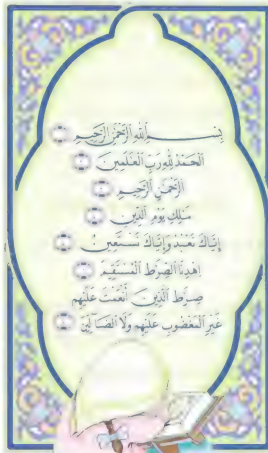 بِسْمِ اللَّهِ الرَّحْمَٰنِ الرَّحِيمِ ۝١
الْحَمْدُ لِلَّهِ رَبِّ الْعَالَمِينَ ۝٢
الرَّحْمَٰنِ الرَّحِيمِ ۝٣
مَالِكِ يَوْمِ الدِّينِ ۝٤
إِيَّاكَ نَعْبُدُ وَإِيَّاكَ نَسْتَعِينُ ۝٥
اهْدِنَا الصِّرَاطَ الْمُسْتَقِيمَ ۝٦
صِرَاطَ الَّذِينَ أَنْعَمْتَ عَلَيْهِمْ
غَيْرِ الْمَغْضُوبِ عَلَيْهِمْ وَلَا الضَّالِّينَ ۝٧